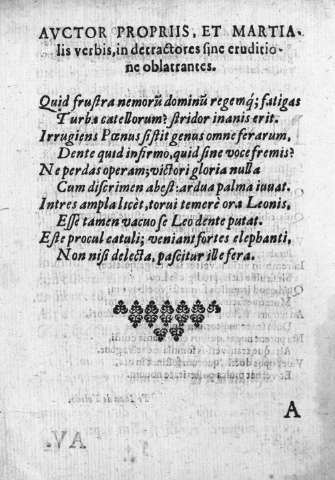 AVCTOR PROPRIIS, ET MARTIA-
lis verbis, in detractores sine eruditio-
ne oblatrantes.
Quid frustra nemorũ dominũ regemq́; fatigas
Turba catellorum? stridor inanis erit.
Irrugiens Pœnus sistit genus omne ferarum,
Dente quid infirmo, quid sine voce fremis?
Ne perdas operam; victori gloria nulla
Cum discrimen abest: ardua palma iuuat.
Intres ampla licèt, torui temerè ora Leonis,
Esse tamen vacuo se Leo dente putat.
Este procul catuli; veniant fortes elephanti,
Non nisi delecta, pascitur ille fera.
A